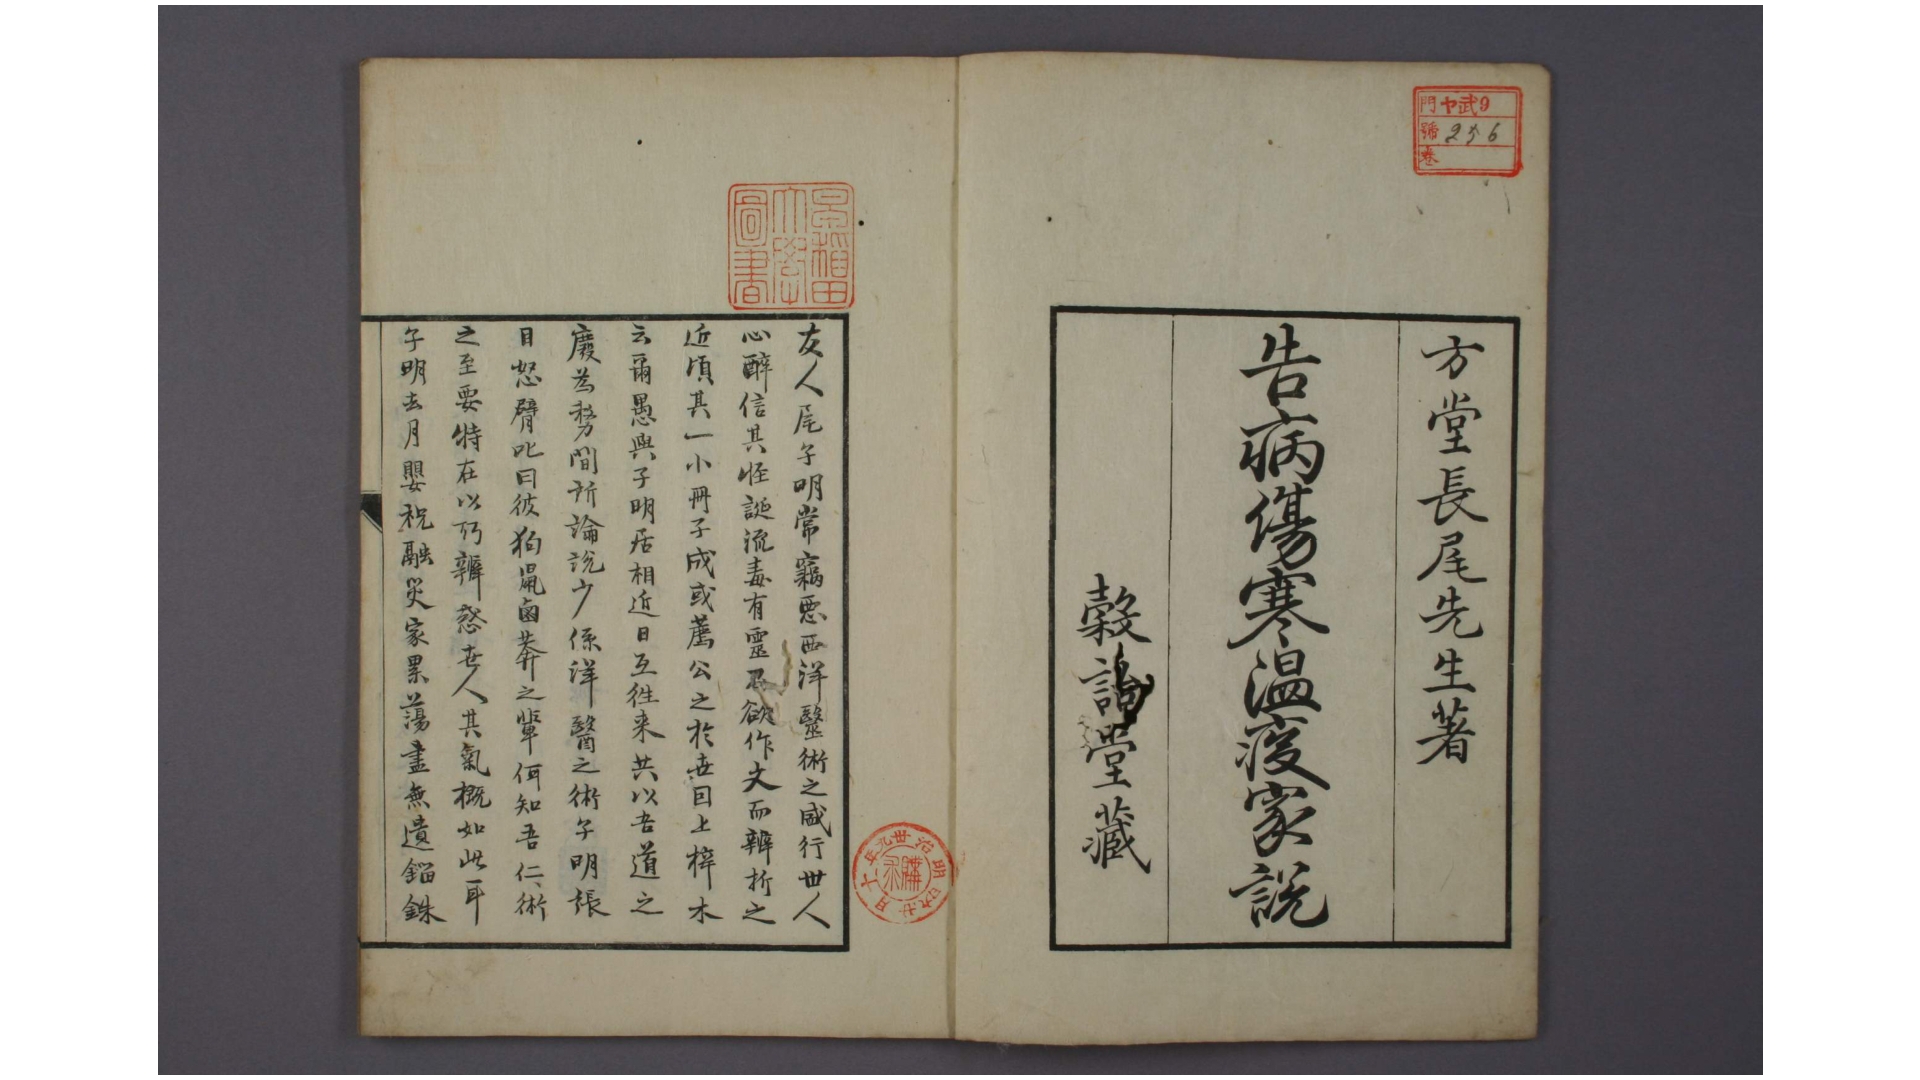 門 ヤ武9
號 256
卷
方堂長尾先生著
告病傷寒温疫家説
穀詒堂藏
早稲田
大學
圖書
明治卅九年十月廿
購求
友人尾子明常竊惡西洋醫術之盛行世人
心醉信其怪誕流毒有靈欲作文而辨析之
近頃其一小冊子成或薦公之於世因上梓木
云爾愚與子明居相近日互往来共以吾道之
廢為務間所論説少係洋醫之術子明張
目怒臂叱曰彼狗鼠鹵莽之輩何知吾仁術
之至要特在以所辨惑世人其氣概如此耳
子明去月嬰祝融災家累蕩盡無遺錙銖